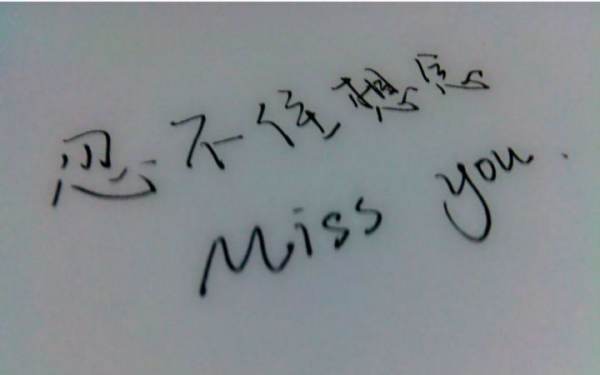 忍不住想您
Miss you.